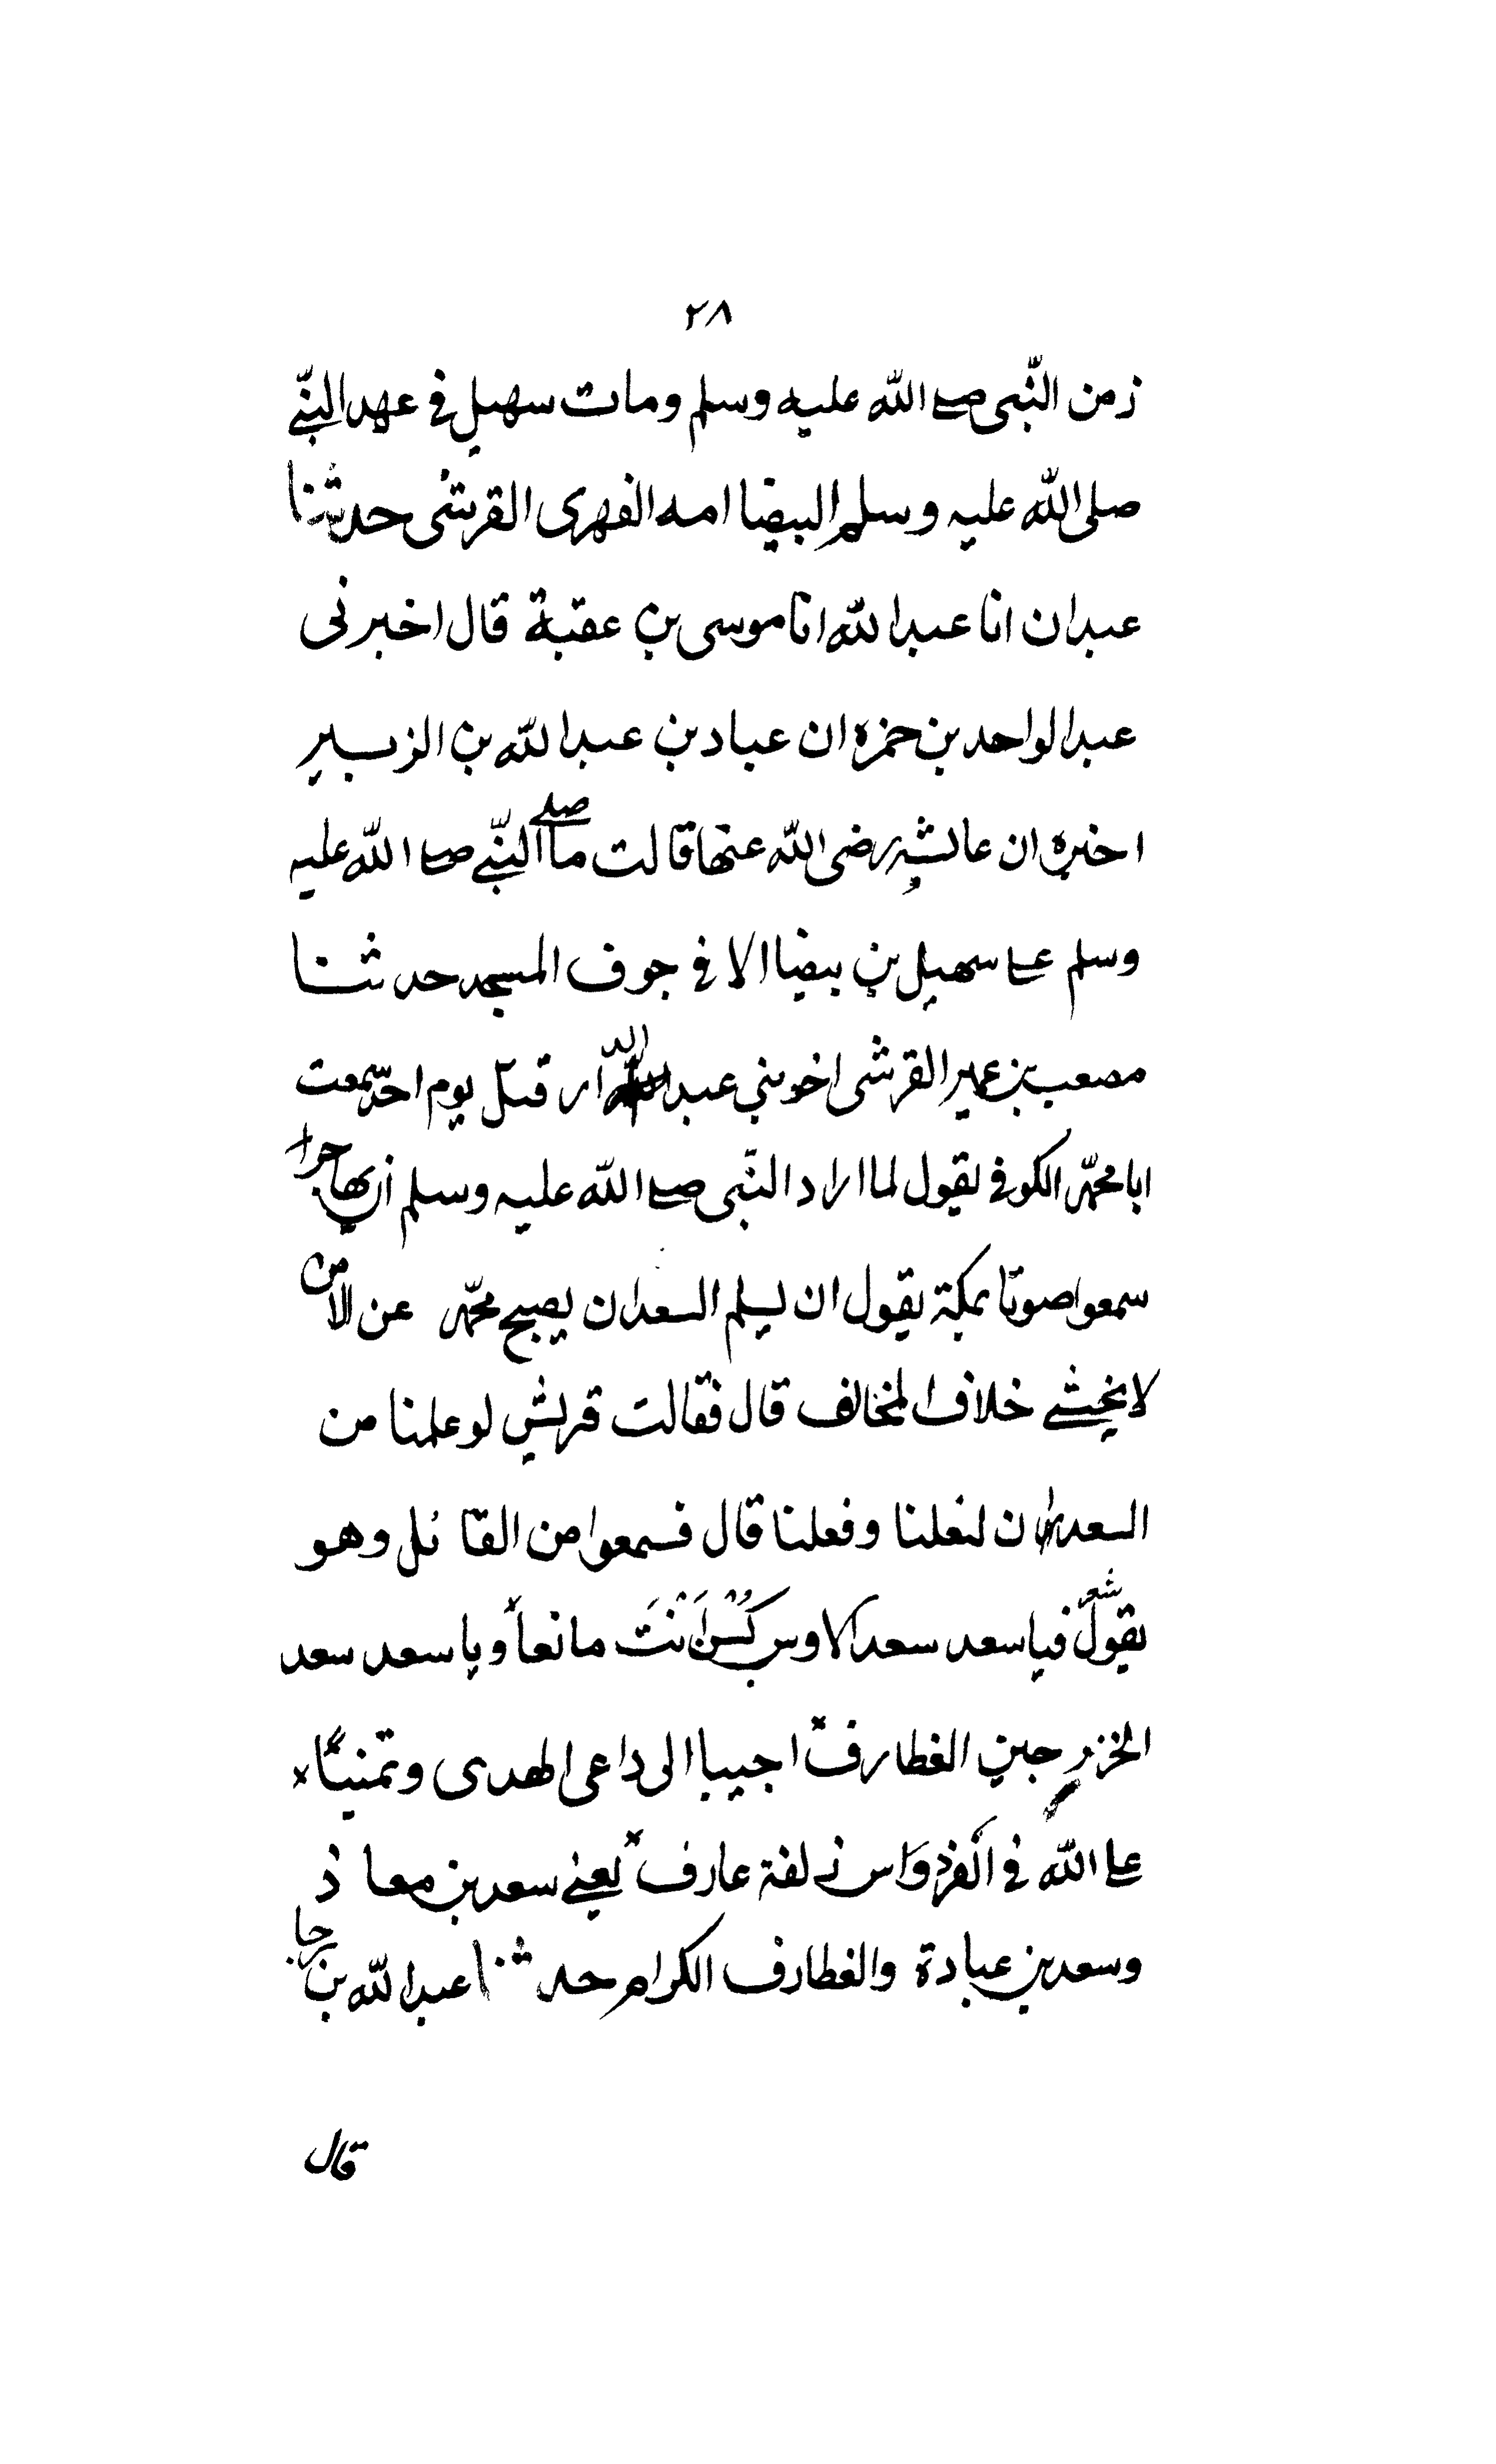 ٢٨
زمن النّبى صلے الله عليه وسلم ومات سهيل فى عهد النبّے
صلى الله عليه وسلم البيضا امه الفهرى القرشى حدثنا
عبدان انا عبد الله انا موسى بن عقبة قال اخبرنى
عبد الواحد بن حمزه ان عباد بن عبد الله بن الزبير
اخبره ان عائشه رضى الله عنها قالت ما صلے النبّے صلے الله عليه
وسلم علے سهيل بن بيضا الا فى جوف المسجد حدثنا
مصعب بن عمير القرشى اخو بني عبد الدار قتل يوم احد سمعت
ابا محمّد الكوفى يقول لما اراد النّبى صلے الله عليه وسلم ان يهاجر
سمعوا صوتا بمكة يقول ان يسلم السعدان يصبح محمّد من الامن
لا يخشے خلاف المخالف قال فقالت قريش لو علمنا من
السعدان لفعلنا وفعلنا قال فسمعوا من القائل وهو
يقول شعر فيا سعد سعد الاوس كُنْ اَنْتَ مانعاً ويا سعد سعد
الخزرجين الغطارف اجيبا الى داعى الهدى وتمنيًا
على الله فى الفردواس زلفة عارف يعنے سعد بن معاذ
وسعد بن عبادة والغطارف الكرام حدثنا عبد الله بن رجا
قال